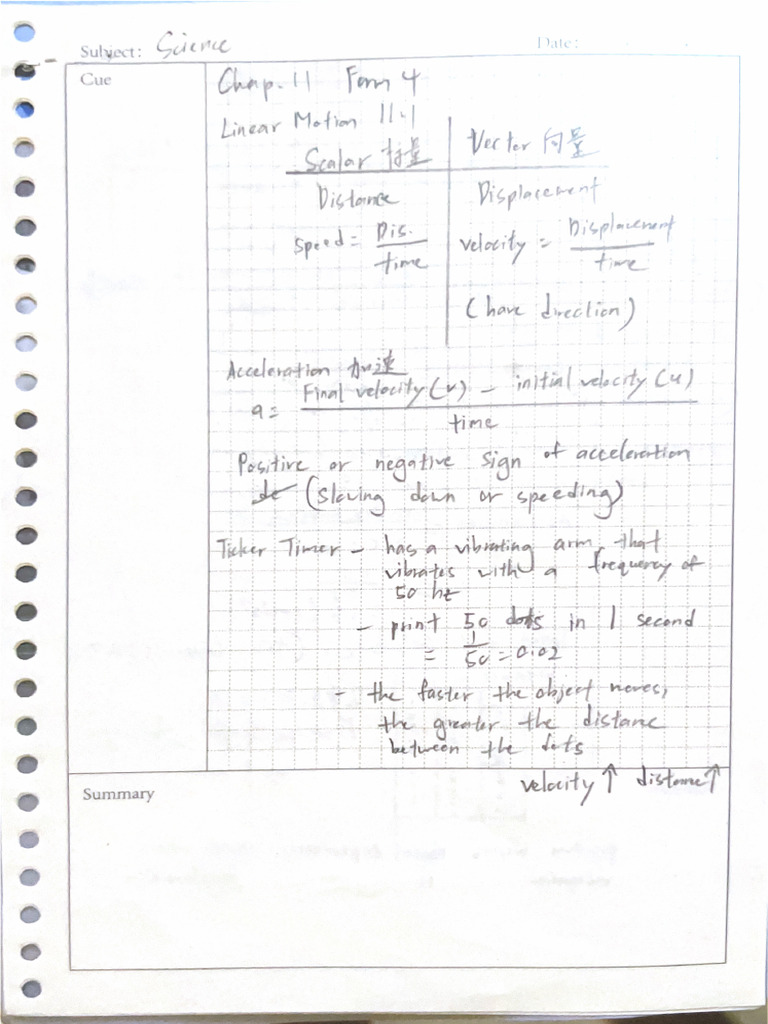 Subject: Science
Date:
Cue
Chap. 11 Form 4
Linear Motion 11.1
Scalar 标量
Vector 向量
Distance
Displacement
speed = Dis. / time
velocity = Displacement / time
(have direction)
Acceleration 加速
a = Final velocity (v) - initial velocity (u) / time
Positive or negative sign of acceleration
(slowing down or speeding)
Ticker Timer - has a vibrating arm that
vibrates with a frequency of
50 hz
- print 50 dots in 1 second
= 1/50 = 0.02
- the faster the object moves,
the greater the distance
between the dots
velocity ↑ distance ↑
Summary